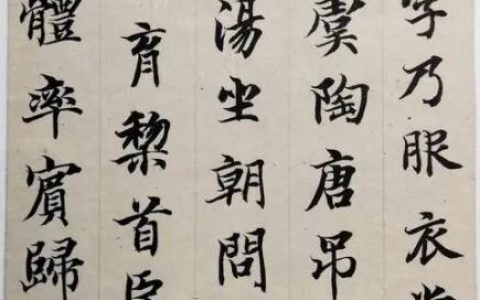 字乃服衣裳
虞陶唐吊
湯坐朝問
育黎首臣
體率賓歸